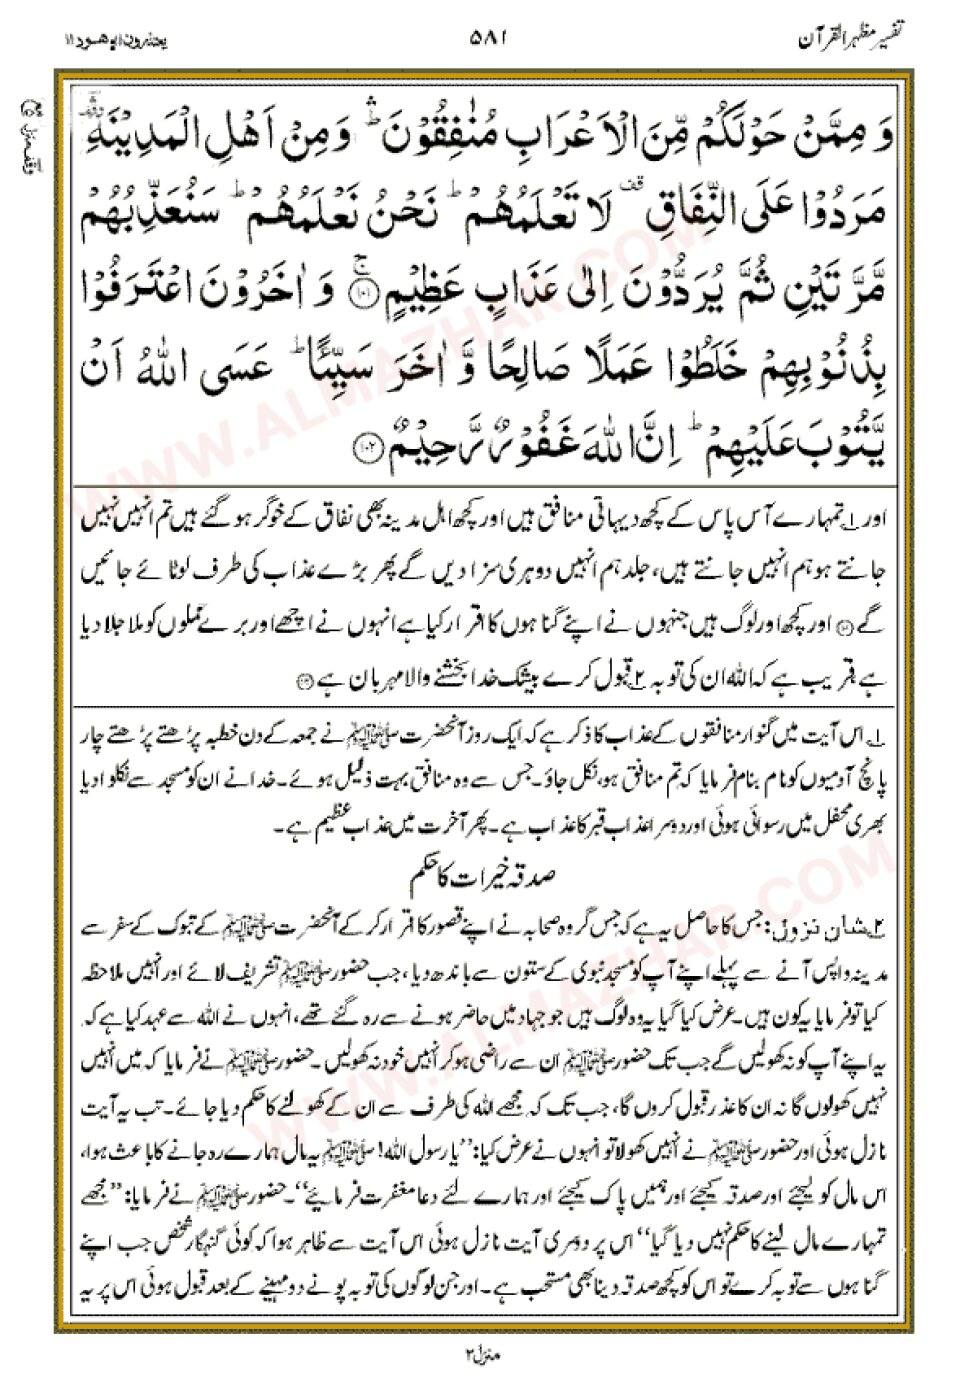 تفسیر مظہرالقرآن
۵۸۱
یعتذرون ابوھود ۱۱
وَ مِمَّنْ حَوْلَكُمْ مِّنَ الْاَعْرَابِ مُنٰفِقُوْنَ ۛؕ وَ مِنْ اَهْلِ الْمَدِیْنَةِ ۛؔ۫
مَرَدُوْا عَلَى النِّفَاقِ ۫ لَا تَعْلَمُهُمْ ؕ نَحْنُ نَعْلَمُهُمْ ؕ سَنُعَذِّبُهُمْ
مَّرَّتَیْنِ ثُمَّ یُرَدُّوْنَ اِلٰى عَذَابٍ عَظِیْمٍۚ۝۱۰۱ وَ اٰخَرُوْنَ اعْتَرَفُوْا
بِذُنُوْبِهِمْ خَلَطُوْا عَمَلًا صَالِحًا وَّ اٰخَرَ سَیِّئًا ؕ عَسَى اللّٰهُ اَنْ
یَّتُوْبَ عَلَیْهِمْ ؕ اِنَّ اللّٰهَ غَفُوْرٌ رَّحِیْمٌ۝۱۰۲
اور ۱ تمہارے آس پاس کے کچھ دیہاتی منافق ہیں اور کچھ اہل مدینہ بھی نفاق کے خوگر ہو گئے ہیں تم انہیں نہیں
جانتے ہو ہم انہیں جانتے ہیں، جلد ہم انہیں دوہری سزا دیں گے پھر بڑے عذاب کی طرف لوٹائے جائیں
گے ۱۰۱ اور کچھ اور لوگ ہیں جنہوں نے اپنے گناہوں کا اقرار کیا ہے انہوں نے اچھے اور برے عملوں کو ملا جلا دیا
ہے قریب ہے کہ اللہ ان کی توبہ ۲ قبول کرے بیشک خدا بخشنے والا مہربان ہے ۱۰۲
۱ اس آیت میں گنوار منافقوں کے عذاب کا ذکر ہے کہ ایک روز آنحضرت ﷺ نے جمعہ کے دن خطبہ پڑھتے پڑھتے چار
پانچ آدمیوں کو نام بنام فرمایا کہ تم منافق ہو، نکل جاؤ۔ جس سے وہ منافق بہت ذلیل ہوئے۔ خدا نے ان کو مسجد سے نکلوا دیا
بھری محفل میں رسوائی ہوئی اور دوسرا عذاب قبر کا عذاب ہے۔ پھر آخرت میں عذاب عظیم ہے۔
صدقہ خیرات کا حکم
۲ شان نزول: جس کا حاصل یہ ہے کہ جس گروہ صحابہ نے اپنے قصور کا اقرار کر کے آنحضرت ﷺ کے تبوک کے سفر سے
مدینہ واپس آنے سے پہلے اپنے آپ کو مسجد نبوی کے ستون سے باندھ دیا، جب حضور ﷺ تشریف لائے اور انہیں ملاحظہ
کیا تو فرمایا یہ کون ہیں۔ عرض کیا گیا یہ وہ لوگ ہیں جو جہاد میں حاضر ہونے سے رہ گئے تھے، انہوں نے اللہ سے عہد کیا ہے کہ
یہ اپنے آپ کو نہ کھولیں گے جب تک حضور ﷺ ان سے راضی ہو کر انہیں خود نہ کھولیں۔ حضور ﷺ نے فرمایا کہ میں انہیں
نہیں کھولوں گا نہ ان کا عذر قبول کروں گا، جب تک کہ مجھے اللہ کی طرف سے ان کے کھولنے کا حکم دیا جائے۔ تب یہ آیت
نازل ہوئی اور حضور ﷺ نے انہیں کھولا تو انہوں نے عرض کیا: ’’یا رسول اللہ! ﷺ یہ مال ہمارے رہ جانے کا باعث ہوا،
اس مال کو لیجئے اور صدقہ کیجئے اور ہمیں پاک کیجئے اور ہمارے لئے دعا مغفرت فرمائیے‘‘۔ حضور ﷺ نے فرمایا: ’’مجھے
تمہارے مال لینے کا حکم نہیں دیا گیا‘‘ اس پر دوسری آیت نازل ہوئی اس آیت سے ظاہر ہوا کہ کوئی گنہگار شخص جب اپنے
گناہوں سے توبہ کرے تو اس کو کچھ صدقہ دینا بھی مستحب ہے۔ اور جن لوگوں کی توبہ پونے دو مہینے کے بعد قبول ہوئی اس پر یہ
منزل۲
WWW.ALMAZHAR.COM
WWW.ALMAZHAR.COM